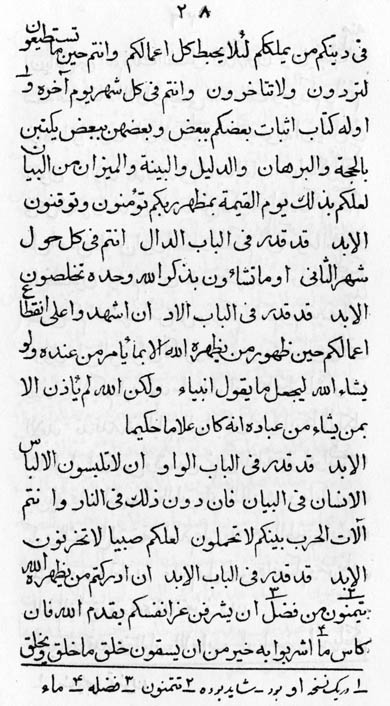 ٢٨
فی دینکم من یملککم لئلا یحبط کل اعمالکم وانتم حین ما تستطیعون
لتردون ولا تتاخرون وانتم فی کل شهر یوم آخره و١
اوله کتاب اثبات بعضکم ببعض وبعضهن ببعض یکتبن
بالحجة والبرهان والدلیل والبینة والمیزان من البیان
لعلکم بذلک یوم القیمة بمظهر ربکم تؤمنون وتوقنون
الابد قد قدر فی الباب الدال انتم فی کل حول
شهر الثانی او ما تشاءون بذکر الله وحده تخلصون
الابد قد قدر فی الباب الاد ان اشهدوا علی انقطاع
اعمالکم حین ظهور من یظهره الله الا بما یأمر من عنده ولو
یشاء الله لیجعل ما یقول انبیاء ولکن الله لم یأذن الا
بمن یشاء من عباده انه کان علاما حکیما
الابد قد قدر فی الباب الواو ان لا تلبسون الالباس
الانسان فی البیان فان دون ذلک فی النار وانتم
آلات الحرب بینکم لا تحملون لعلکم صبیا لا تحزنون
الابد قد قدر فی الباب الابد ان ادرکتم من یظهره الله
٢ تتمنون من فضل ٣ ان یشرفن عز انفسکم بقدم الله فان
کاس ما ٤ أشربوا به خیر من ان یسقون خلق ما خلق ویخلق
١ در یک نسخه او بود - شاید بوده ٢ تتمنون ٣ فضله ٤ ماء